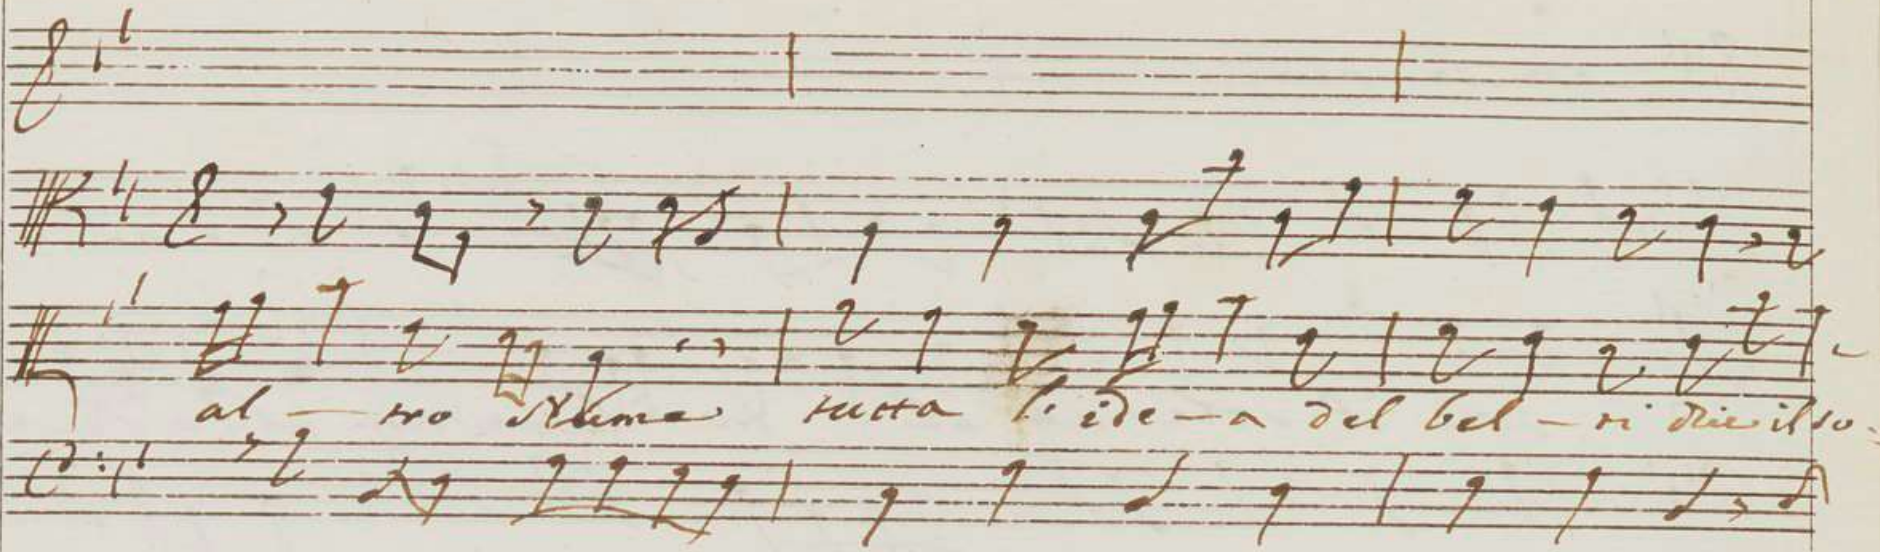 al - tro Nume tutta l'idea - a del bel - ri die il so-